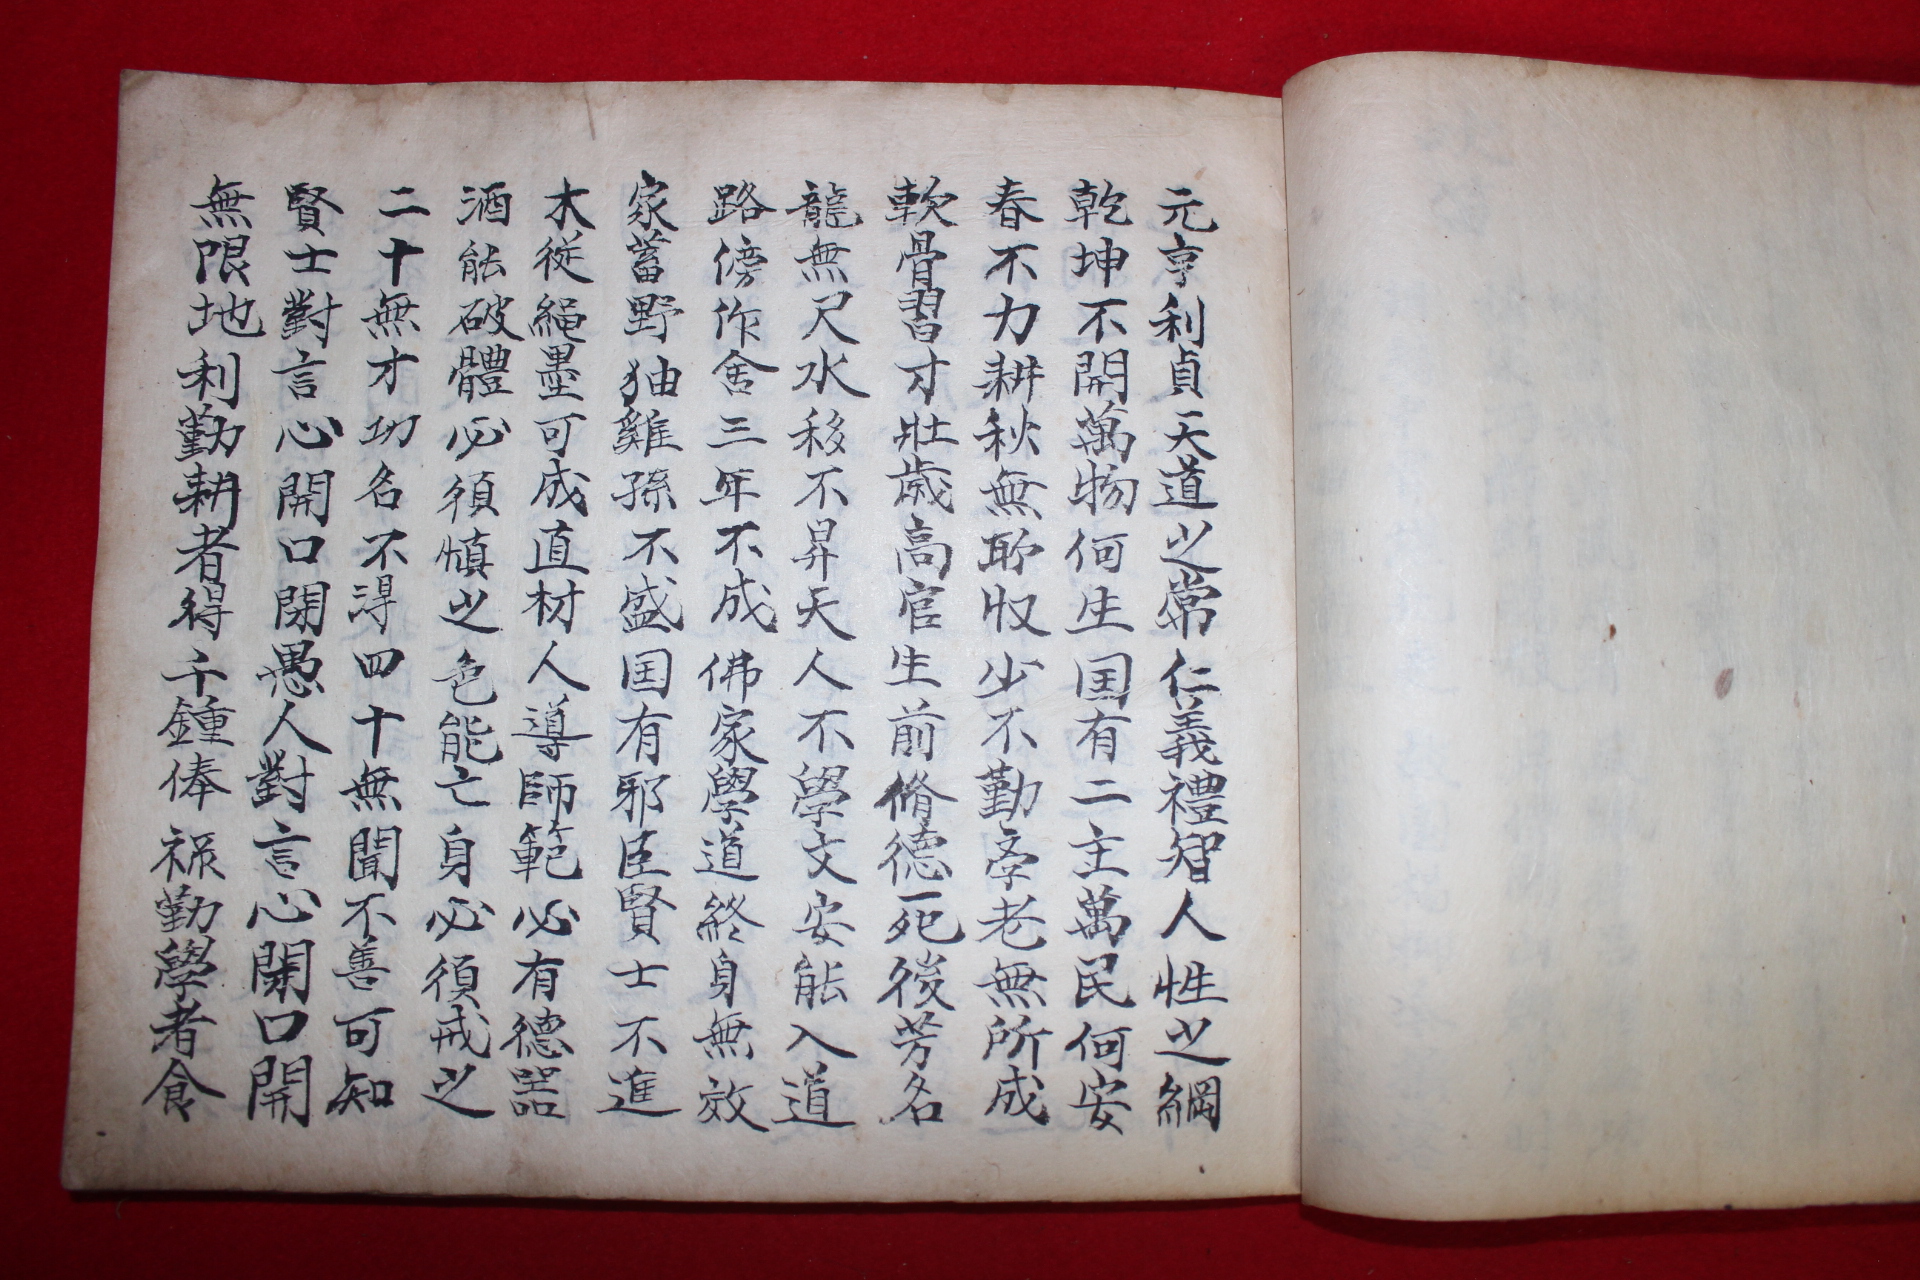 元亨利貞天道之常仁義禮智人性之綱
乾坤不開萬物何生国有二主萬民何安
春不力耕秋無所収少不勤学老無所成
軟骨習寸壯歲高官生前脩德死後芳名
龍無尺水移不昇天人不學文安能入道
路傍作舍三年不成佛家學道終身無效
家蓄野狆雞孫不盛国有邪臣賢士不進
木從繩墨可成直材人導師範必有德器
酒能破體必須慎之色能亡身必須戒之
二十無才功名不得四十無聞不善可知
賢士對言心開口閉愚人對言心閉口開
無限地利勤耕者得千鍾俸祿勤學者食